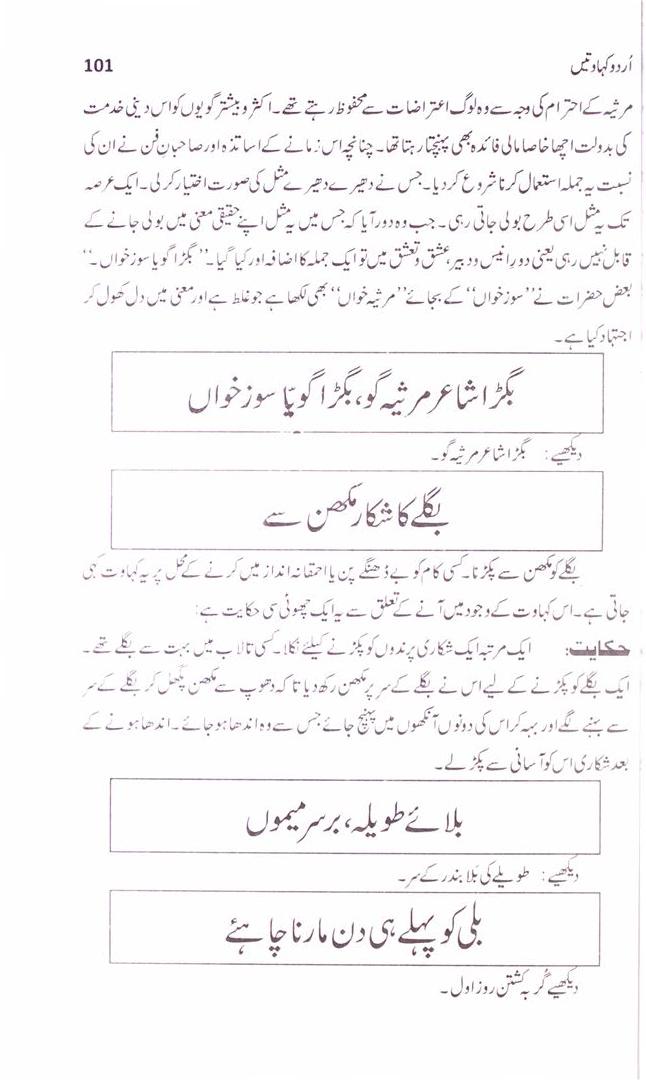 اُردو کہاوتیں 101
مرثیہ کے احترام کی وجہ سے وہ لوگ اعتراضات سے محفوظ رہتے تھے۔ اکثر و بیشتر گویوں کو اس دینی خدمت
کی بدولت اچھا خاصا مالی فائدہ بھی پہنچتا رہتا تھا۔ چنانچہ اس زمانے کے اساتذہ اور صاحبانِ فن نے ان کی
نسبت یہ جملہ استعمال کرنا شروع کر دیا۔ جس نے دھیرے دھیرے مثل کی صورت اختیار کر لی۔ ایک عرصہ
تک یہ مثل اسی طرح بولی جاتی رہی۔ جب وہ دور آیا کہ جس میں یہ مثل اپنے حقیقی معنی میں بولی جانے کے
قابل نہیں رہی یعنی دورِ انیس و دبیر، عشق و تعشق میں تو ایک جملہ کا اضافہ اور کیا گیا۔ ’’بگڑا گویا سوز خواں۔‘‘
بعض حضرات نے ’’سوز خواں‘‘ کے بجائے ’’مرثیہ خواں‘‘ بھی لکھا ہے جو غلط ہے اور معنی میں دل کھول کر
اجتہاد کیا ہے۔
بگڑا شاعر مرثیہ گو، بگڑا گویّا سوز خواں
دیکھیے: بگڑا شاعر مرثیہ گو۔
بگلے کا شکار مکھن سے
بگلے کو مکھن سے پکڑنا۔ کسی کام کو بے ڈھنگے پن یا احمقانہ انداز میں کرنے کے محل پر یہ کہاوت کہی
جاتی ہے۔ اس کہاوت کے وجود میں آنے کے تعلق سے یہ ایک چھوٹی سی حکایت ہے:
حکایت: ایک مرتبہ ایک شکاری پرندوں کو پکڑنے کیلئے نکلا۔ کسی تالاب میں بہت سے بگلے تھے۔
ایک بگلے کو پکڑنے کے لیے اس نے بگلے کے سر پر مکھن رکھ دیا تا کہ دھوپ سے مکھن پگھل کر بگلے کے سر
سے بہنے لگے اور بہہ کر اس کی دونوں آنکھوں میں پہنچ جائے جس سے وہ اندھا ہو جائے۔ اندھا ہونے کے
بعد شکاری اس کو آسانی سے پکڑ لے۔
بلائے طویلہ، برسرِ میموں
دیکھیے: طویلے کی بَلا بندر کے سر۔
بلی کو پہلے ہی دن مارنا چاہئے
دیکھیے گُربہ کشتن روزِ اول۔